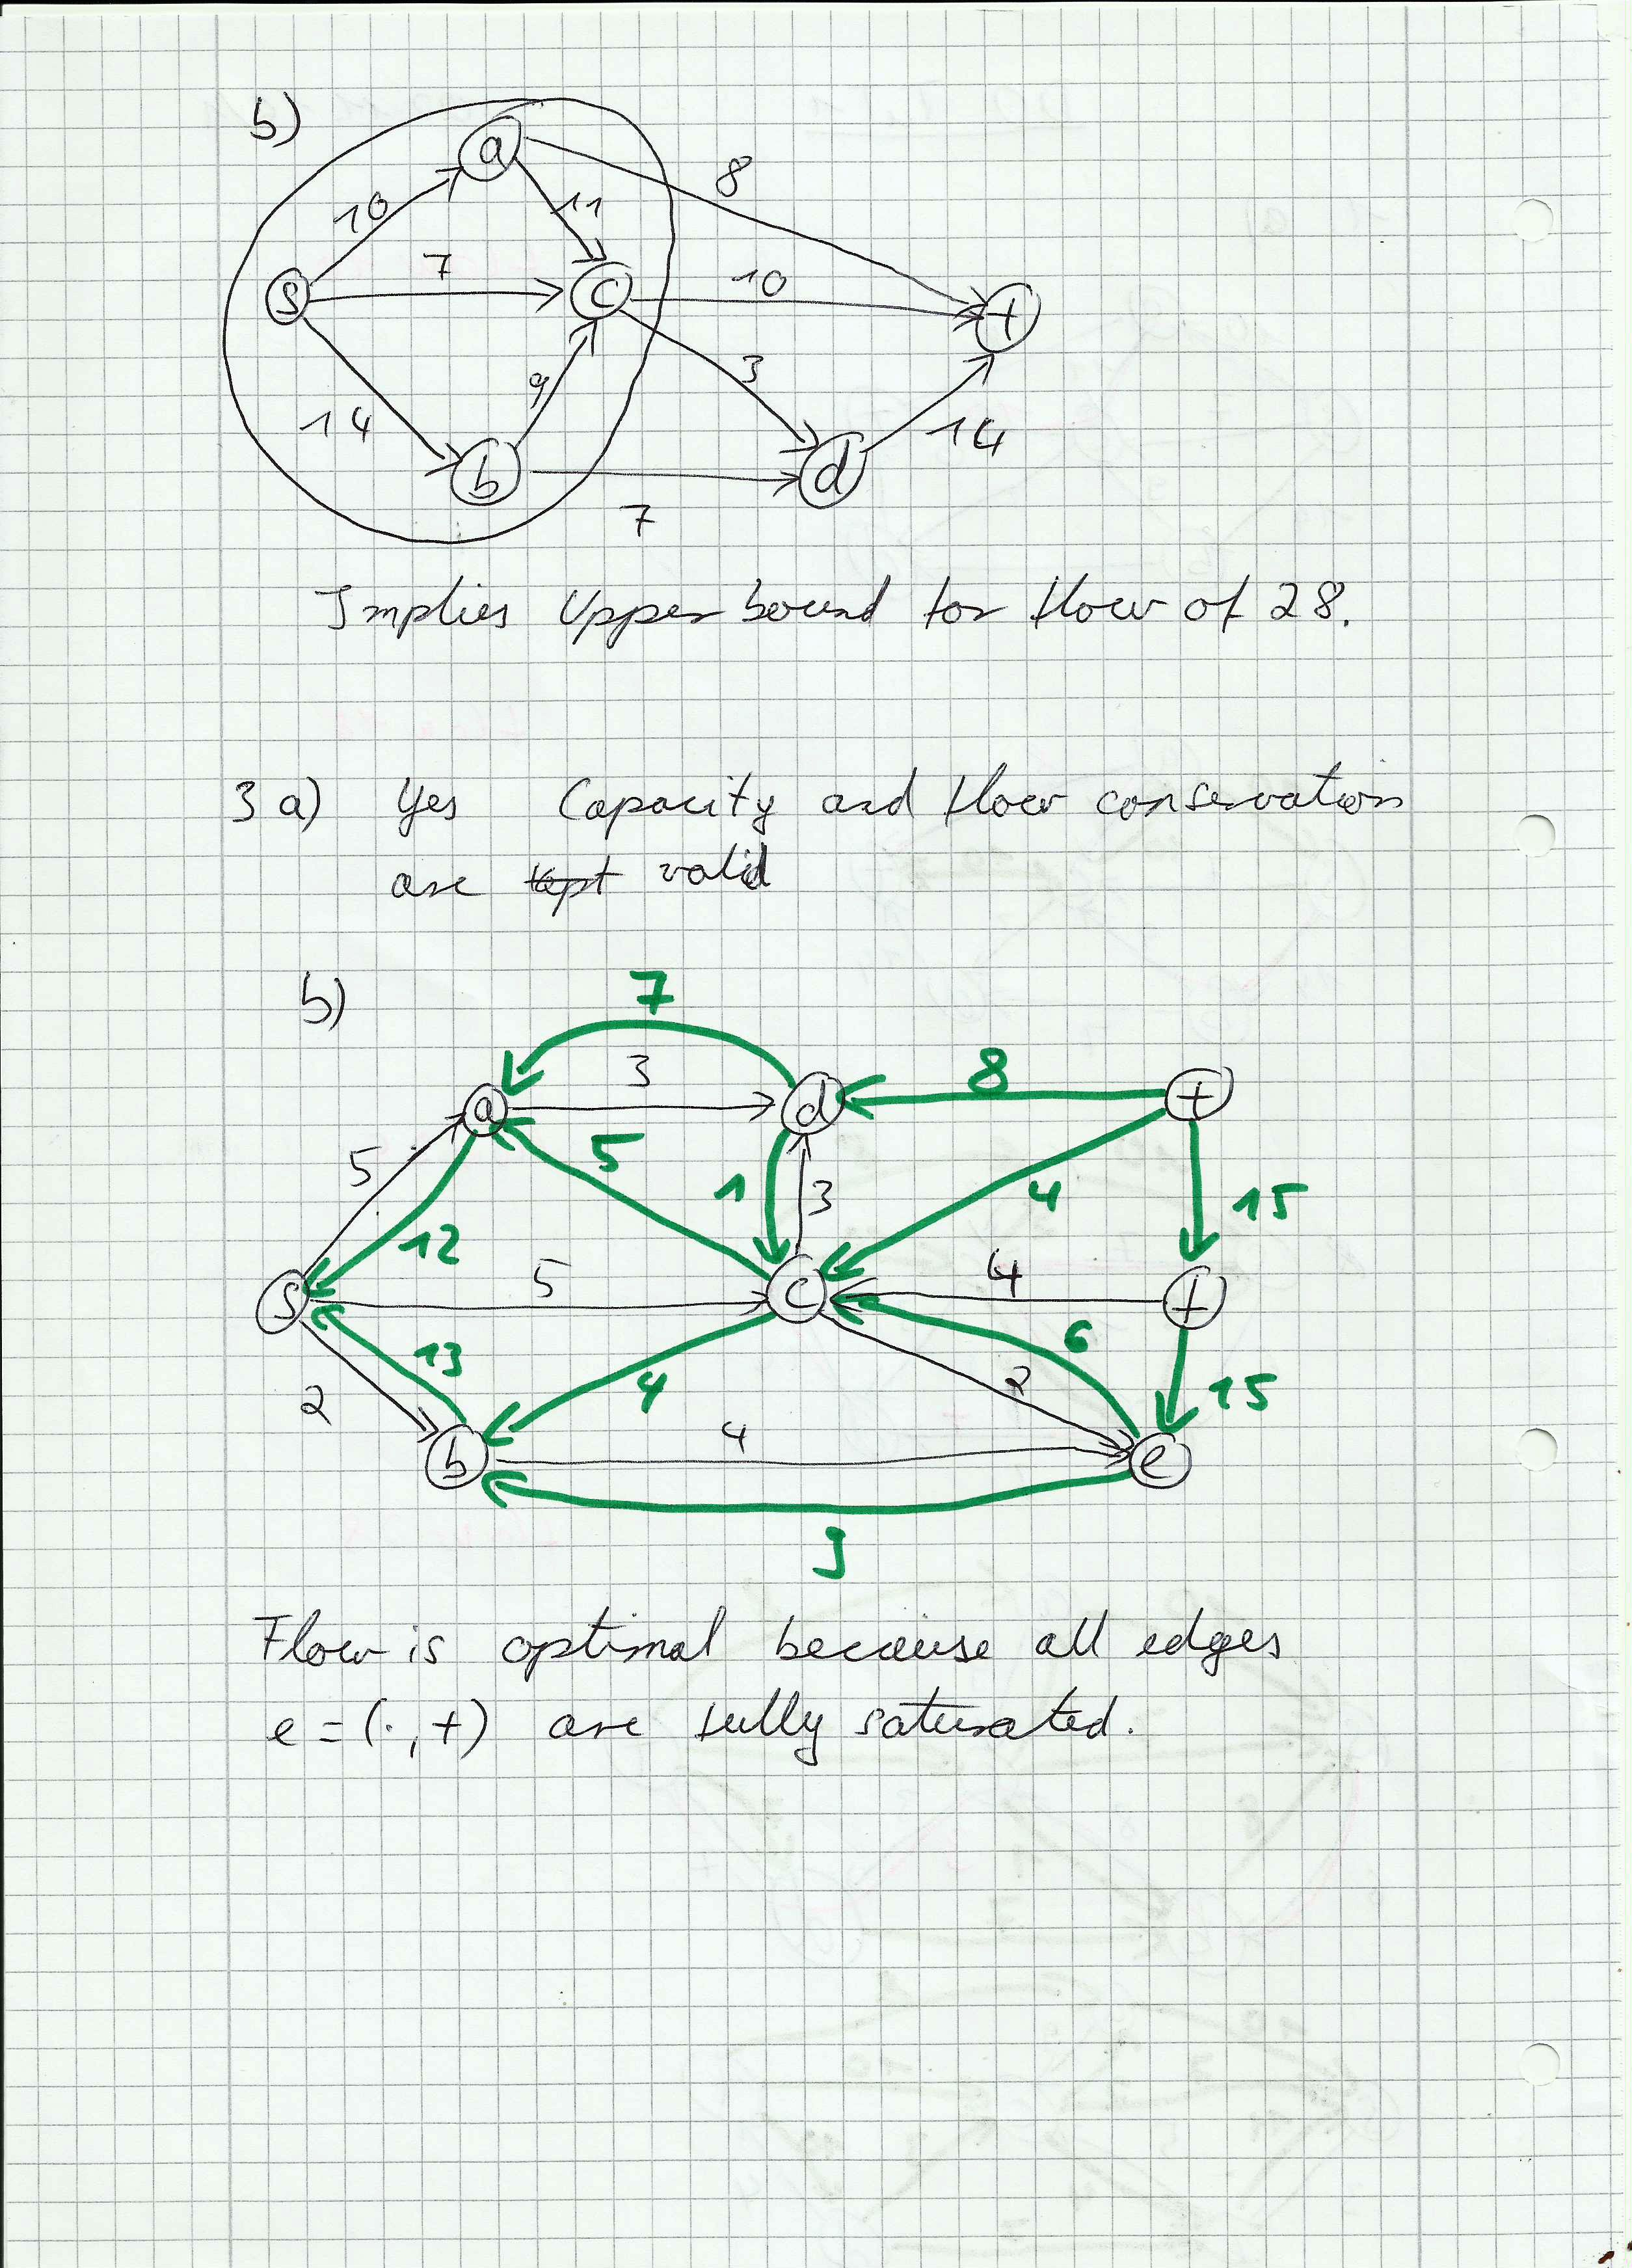 b)
a
8
10
11
7
10
s
c
t
9
3
14
14
b
d
7
Implies Upper bound for flow of 28.
3 a) Yes Capacity and flow conservation
are kept valid
b)
7
3
8
a
d
t
5
5
1
3
4
15
12
5
4
s
c
f
13
6
4
2
15
2
4
b
e
Flow is optimal because all edges
e = (·, t) are fully saturated.